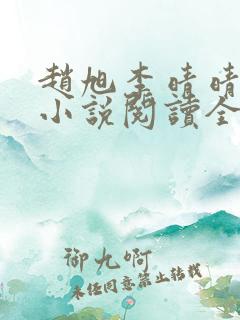 趙旭李晴晴
小說閱讀全
御九啊
未經同意禁止轉載